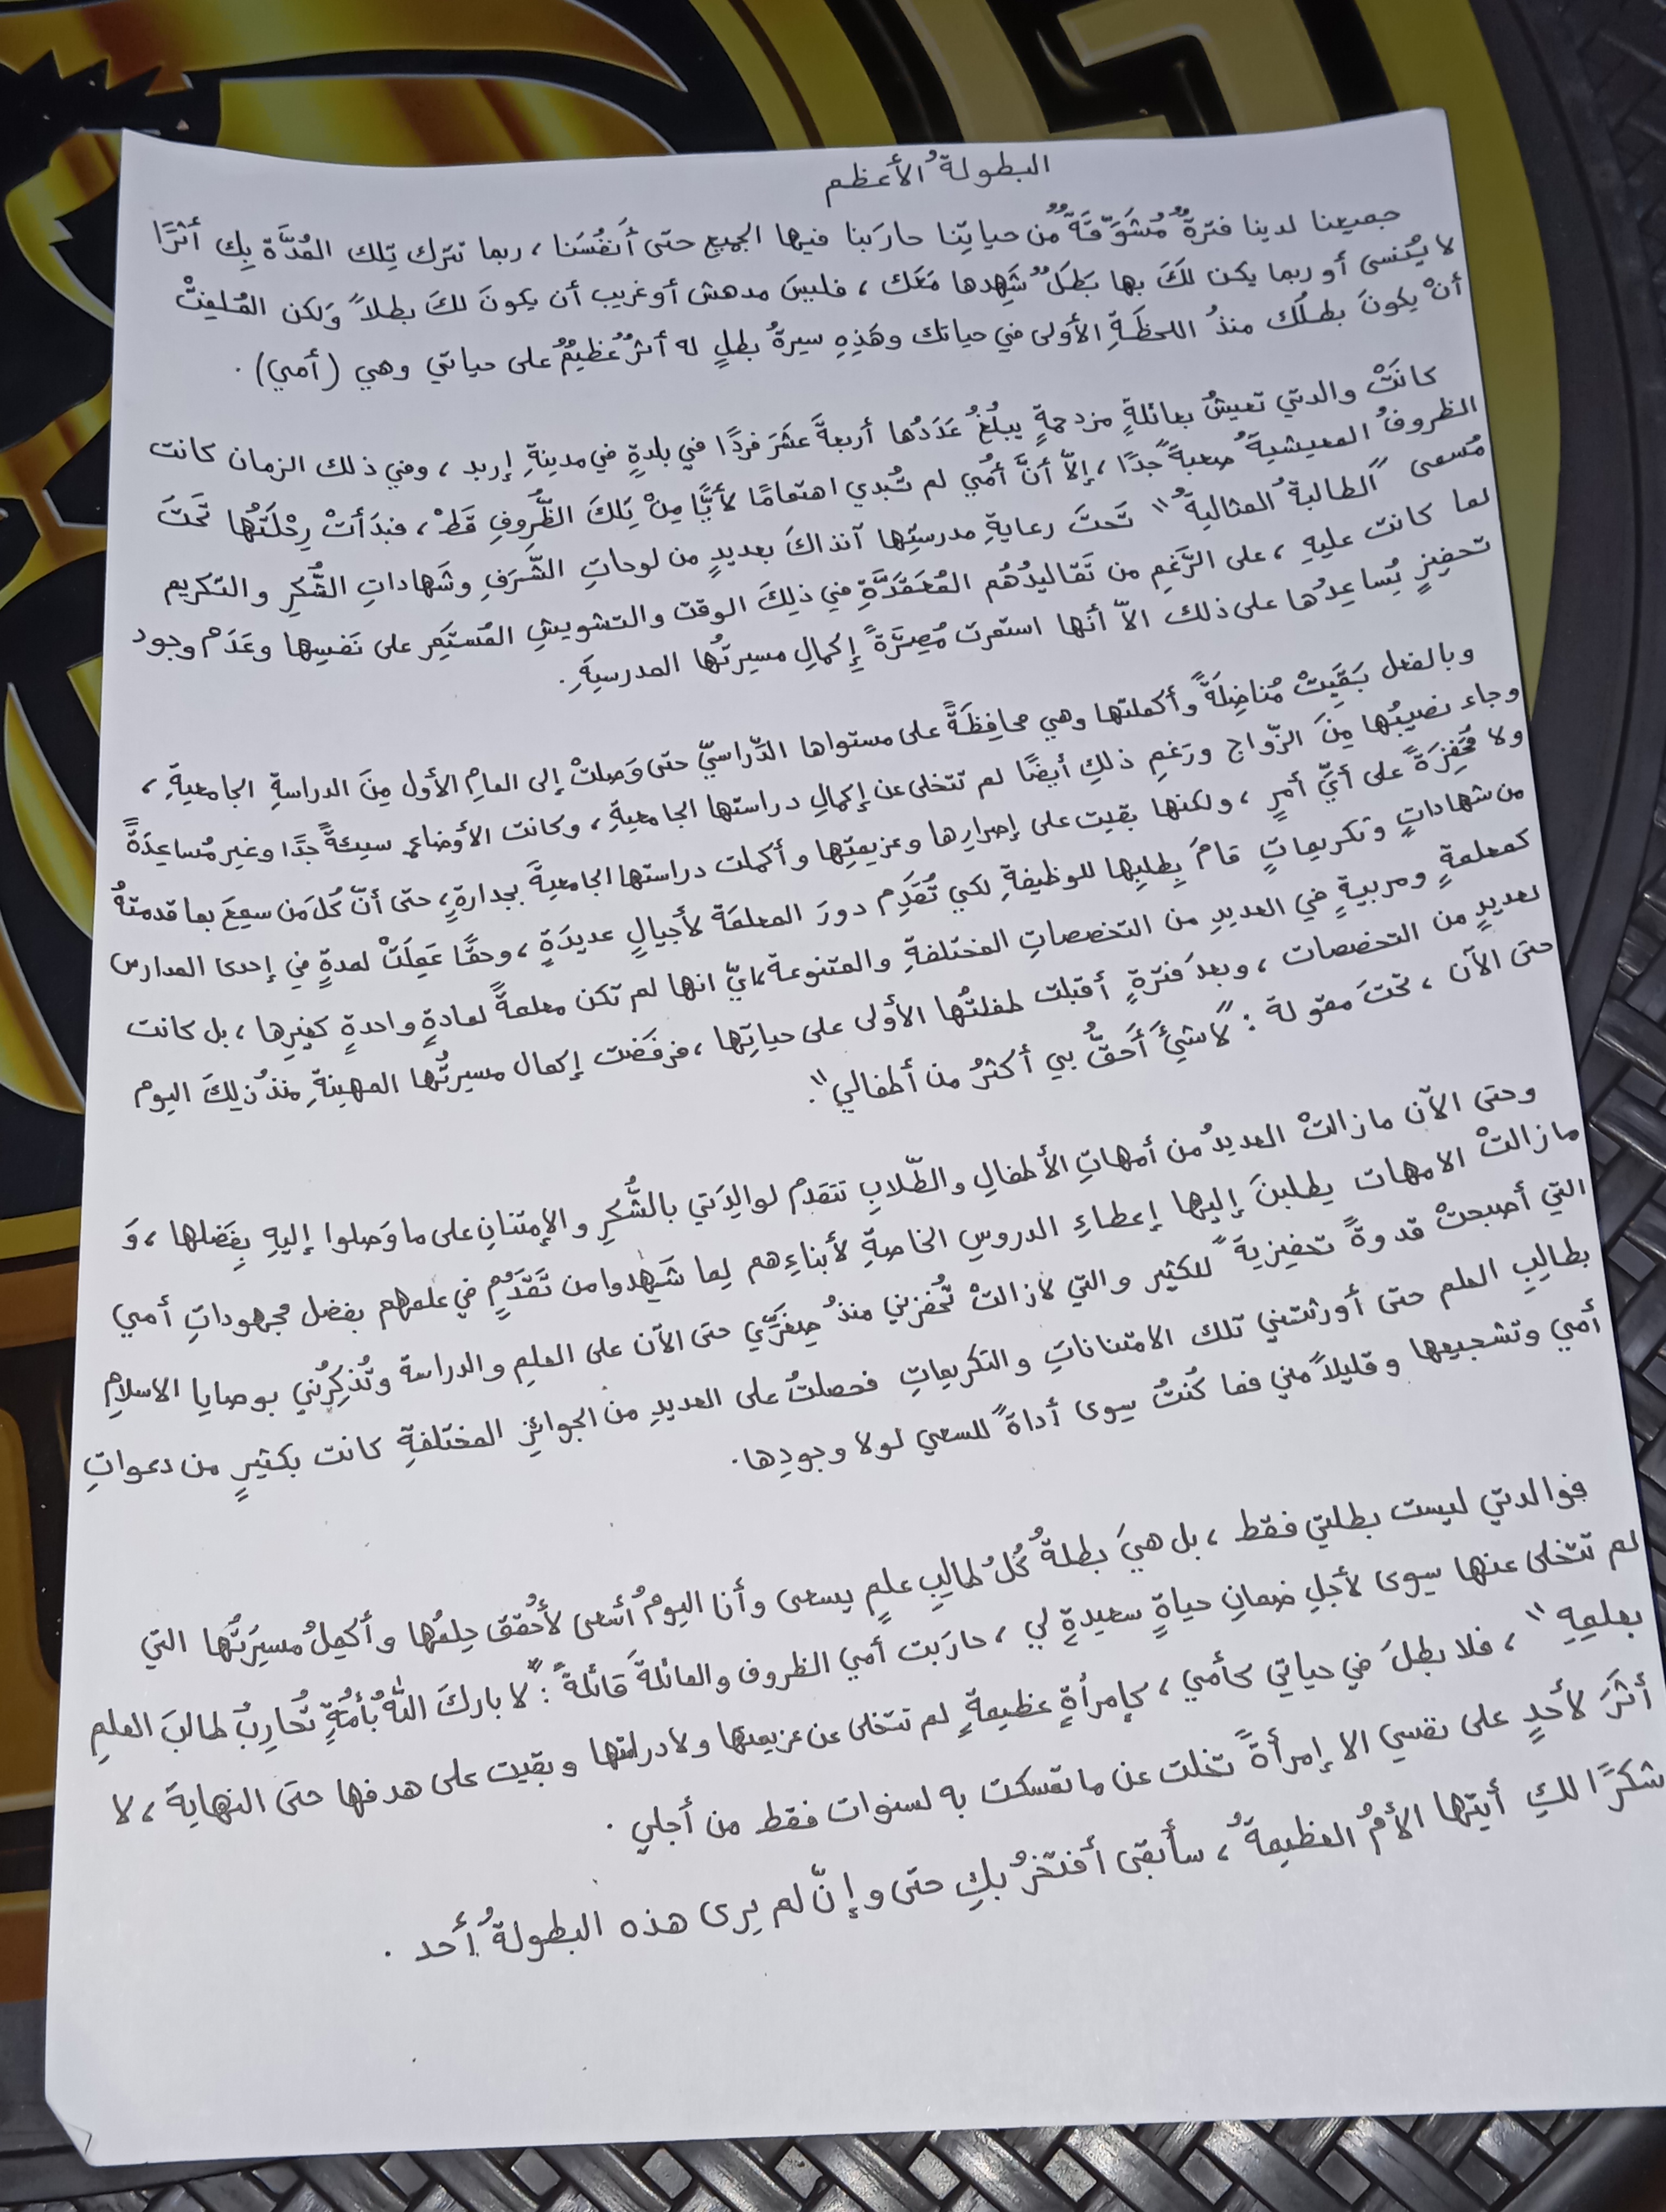 البطولةُ الأعظم
جميعنا لدينا فترةٌ مُشَوِّقَةٌ من حياتِنا حارَبنا فيها الجميع حتى أَنفُسَنا ، ربما تترك تِلك المُدَّة بِك أثرًا
لا يُنسى أو ربما يكن لكَ بها بَطَلٌ شَهِدها مَعَك ، فليسَ مدهش أو غريب أن يكونَ لكَ بطلاً وَلكن المُلفِتْ
أنْ يكونَ بطلُك منذُ اللحظَةِ الأولى في حياتك وهَذِهِ سيرةُ بطلٍ له أثرٌ عظيمٌ على حياتي وهي (أمي) .
كانَتْ والدتي تعيشُ بعائلةٍ مزدحمةٍ يبلُغُ عَدَدُها أربعةَ عشَرَ فردًا في بلدةٍ في مدينةِ إربد ، وفي ذلك الزمان كانت
الظروفُ المعيشيةُ صعبةً جدًا ، إلّا أنَّ أمّي لم تُبدي اهتمامًا لأيًّا مِنْ تِلكَ الظُّروفِ قَطْ ، فبدَأتْ رِحْلَتُها تَحتَ
مُسمى "الطالبةُ المثاليةُ" تَحتَ رعايةِ مدرستِها آنذاكَ بعديدٍ من لوحاتِ الشَّرَفِ وشَهاداتِ الشُّكرِ والتكريم
لما كانت عليهِ ، على الرَّغمِ من تَقاليدُهُم المُعَقدَّةِ في ذلِكَ الوقت والتشويشِ المُستَمِر على نَفسِها وعَدَم وجود
تحفيزٍ يُساعِدُها على ذلك الاّ أنها استمرت مُصِرَّةً إِكمالِ مسيرتُها المدرسيةِ .
وبالفعل بَقَيِتْ مُناضِلَةً وأكملتها وهي محافِظَةً على مستواها الدّراسيّ حتى وَصلتْ إلى العامِ الأول مِنَ الدراسةِ الجامعيةِ ،
وجاء نصيبُها مِنَ الزّواج ورَغمِ ذلكِ أيضًا لم تتخلى عن إكمالِ دراستها الجامعيةِ ، وكانت الأوضاع سيئةً جدًا وغير مُساعِدَةً
ولا مُحَفِزَةً على أيِّ أمرٍ ، ولكنها بقيت على إصرارِها وعزيمتِها وأكملت دراستها الجامعيةَ بجدارةٍ ، حتى أنّ كُلَ مَن سمِعَ بما قدمتهُ
من شهاداتٍ وتكريماتٍ قامَ بِطلبِها للوظيفةِ لكي تُقَدِم دورَ المعلمَة لأجيالٍ عديدَةٍ ، وحقًا عَمِلَتْ لمدةٍ في إحدى المدارس
كمعلمةٍ ومربيةٍ في العديدِ من التخصصاتِ المختلفةِ والمتنوعة ، ايّ انها لم تكن معلمةً لمادةٍ واحدةٍ كغيرِها ، بل كانت
لعديدٍ من التخصصات ، وبعدَ فترةٍ أقبلت طفلتُها الأولى على حياتِها ، فرفَضت إكمال مسيرتُها المهنيةِ منذُ ذلِكَ اليوم
حتى الآن ، تحتَ مقولة : "لا شيءَ أَحَقُّ بي أكثرُ من أطفالي" .
وحتى الآن ما زالتْ العديدُ من أمهاتِ الأطفالِ والطّلابِ تتقدم لوالِدَتي بالشُّكرِ والإمتنانِ على ما وَصلوا إليهِ بِفَضلها ، وَ
ما زالتْ الامهات يطلبنَ إليها إعطاءِ الدروسِ الخاصةِ لأبناءِهم لِما شَهِدوا من تَقَدُمٍ في علمهم بفضل مجهوداتِ أمي
التي أصبحتْ قدوةً تحفيزيةً للكثير والتي لازالتْ تُحفزني منذُ صِغَرّي حتى الآن على العلمِ والدراسة وتُذكِرُني بوصايا الاسلامِ
بطالِبِ العلم حتى أورثتني تلك الامتناناتِ والتكريماتِ فحصلتُ على العديدِ من الجوائزِ المختلفةِ كانت بكثيرٍ من دعواتِ
أمي وتشجيعها وقليلاً مني فما كُنتُ سِوى أداةً للسعي لولا وجودِها .
فوالدتي ليست بطلتي فقط ، بل هيَ بطلةُ كُلُ طالِبِ علمٍ يسعى وأنا اليومُ أسعى لأُحقق حِلمُها وأكمِلُ مسيرَتُها التي
لم تتخلى عنها سِوى لأجلِ ضمانِ حياةٍ سعيدةٍ لي ، حارَبت أمي الظروف والعائلةَ قائلةً : "لا باركَ اللهُ بأمّةٍ تُحارِبُ طالبَ العلمِ
بعلمِهِ" ، فلا بطلَ في حياتي كأمي ، كإمرأةٍ عظيمةٍ لم تتخلى عن عزيمتها ولا دراستها وبقيت على هدفها حتى النهايةَ ، لا
أثرَ لأحدٍ على نفسي الا إمرأةً تخلت عن ما تمسكت به لسنوات فقط من أجلي .
شكرًا لكِ أيتها الأمُ العظيمةُ ، سأبقى أفتخرُ بكِ حتى وإنّ لم يرى هذه البطولةُ أحد .